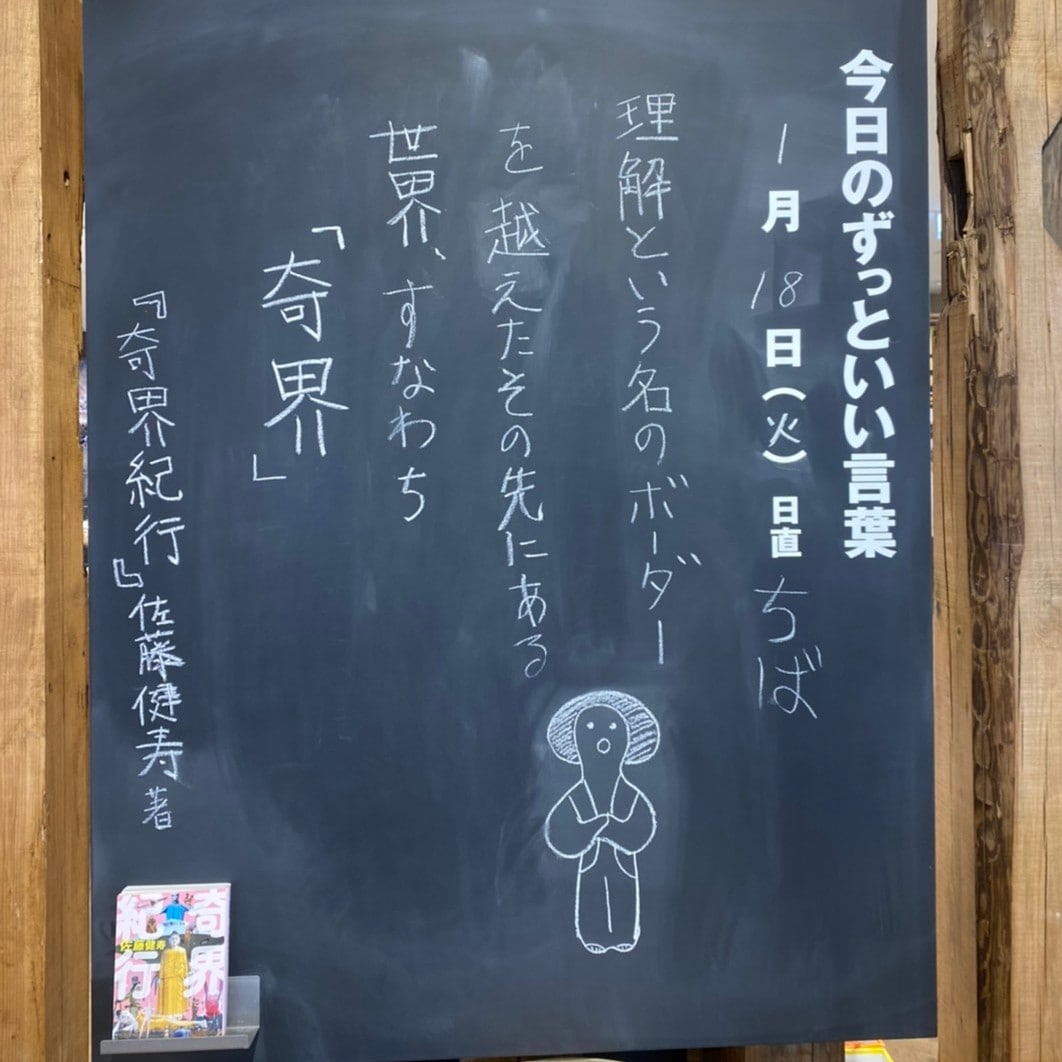 今日のずっといい言葉
1月18日(火)日直 ちば
理解という名のボーダー
を越えたその先にある
世界、すなわち
「奇界」
『奇界紀行』佐藤健寿 著
奇界
紀行
佐藤健寿